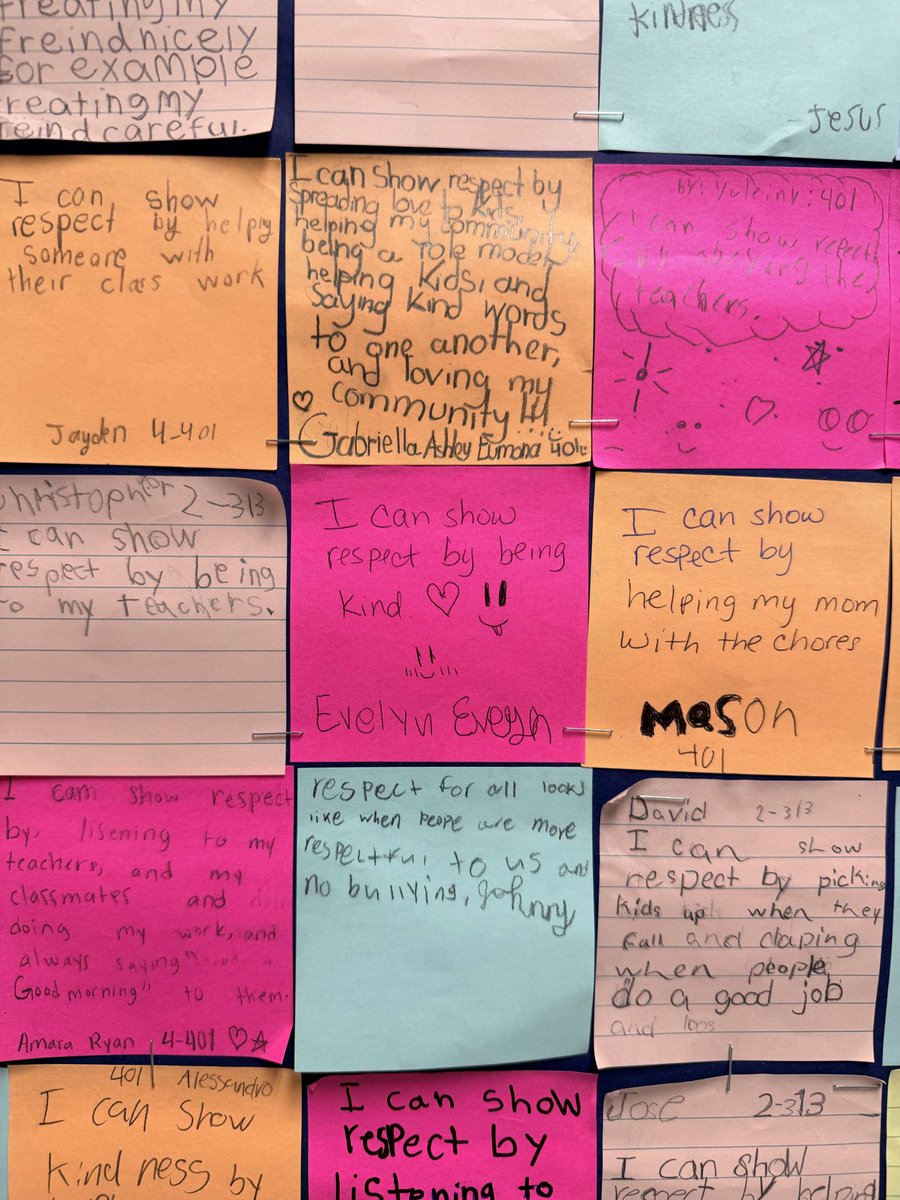 treating my
freind nicely
for example
reating my
reind careful.
kinness
- Jesus
I can show
respect by helping
someone with
their class work
Jayden 4-401
I can show respect by
spreading love to kids,
helping my community,
being a role model,
helping kids, and
saying kind words
to one another,
and loving my
community!!!
Gabriella Ashley Eumana 401
by: Yuleiny: 401
I can show
teachers.
Christopher 2-313
I can show
respect by being
to my teachers.
I can show
respect by being
kind.
Evelyn Evelyn
I can show
respect by
helping my mom
with the chores
Mason
401
I cam show respect
by listening to my
teachers, and my
classmates and
doing my work, and
always saying"
Good morning" to them.
Amara Ryan 4-401
respect for all looks
like when peope are more
respectful to us and
no bullying, Johnny
David 2-313
I can show
respect by picking
kids up when they
fall and claping
when people
do a good job
and
401 Alessandro
I can show
kind ness by
I can show
respect by
listening to
Jose 2-313
I can show
respect by helping